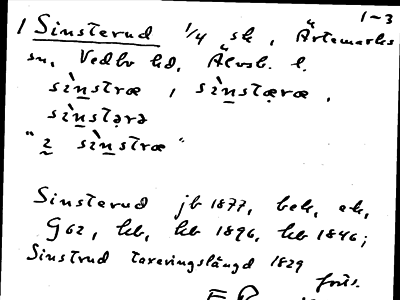 1-3
1 Sinsterud 1/4 sk, Ärtemarks
sn, Vedbo hd, Älvsb. l.
sìnstræ, sìnstæræ,
sìnstərə
"i sìnstræ"
Sinsterud jb 1877, bek, ek,
G62, kb, kb 1896, kb 1846;
Sinstrud taxeringslängd 1829
forts.